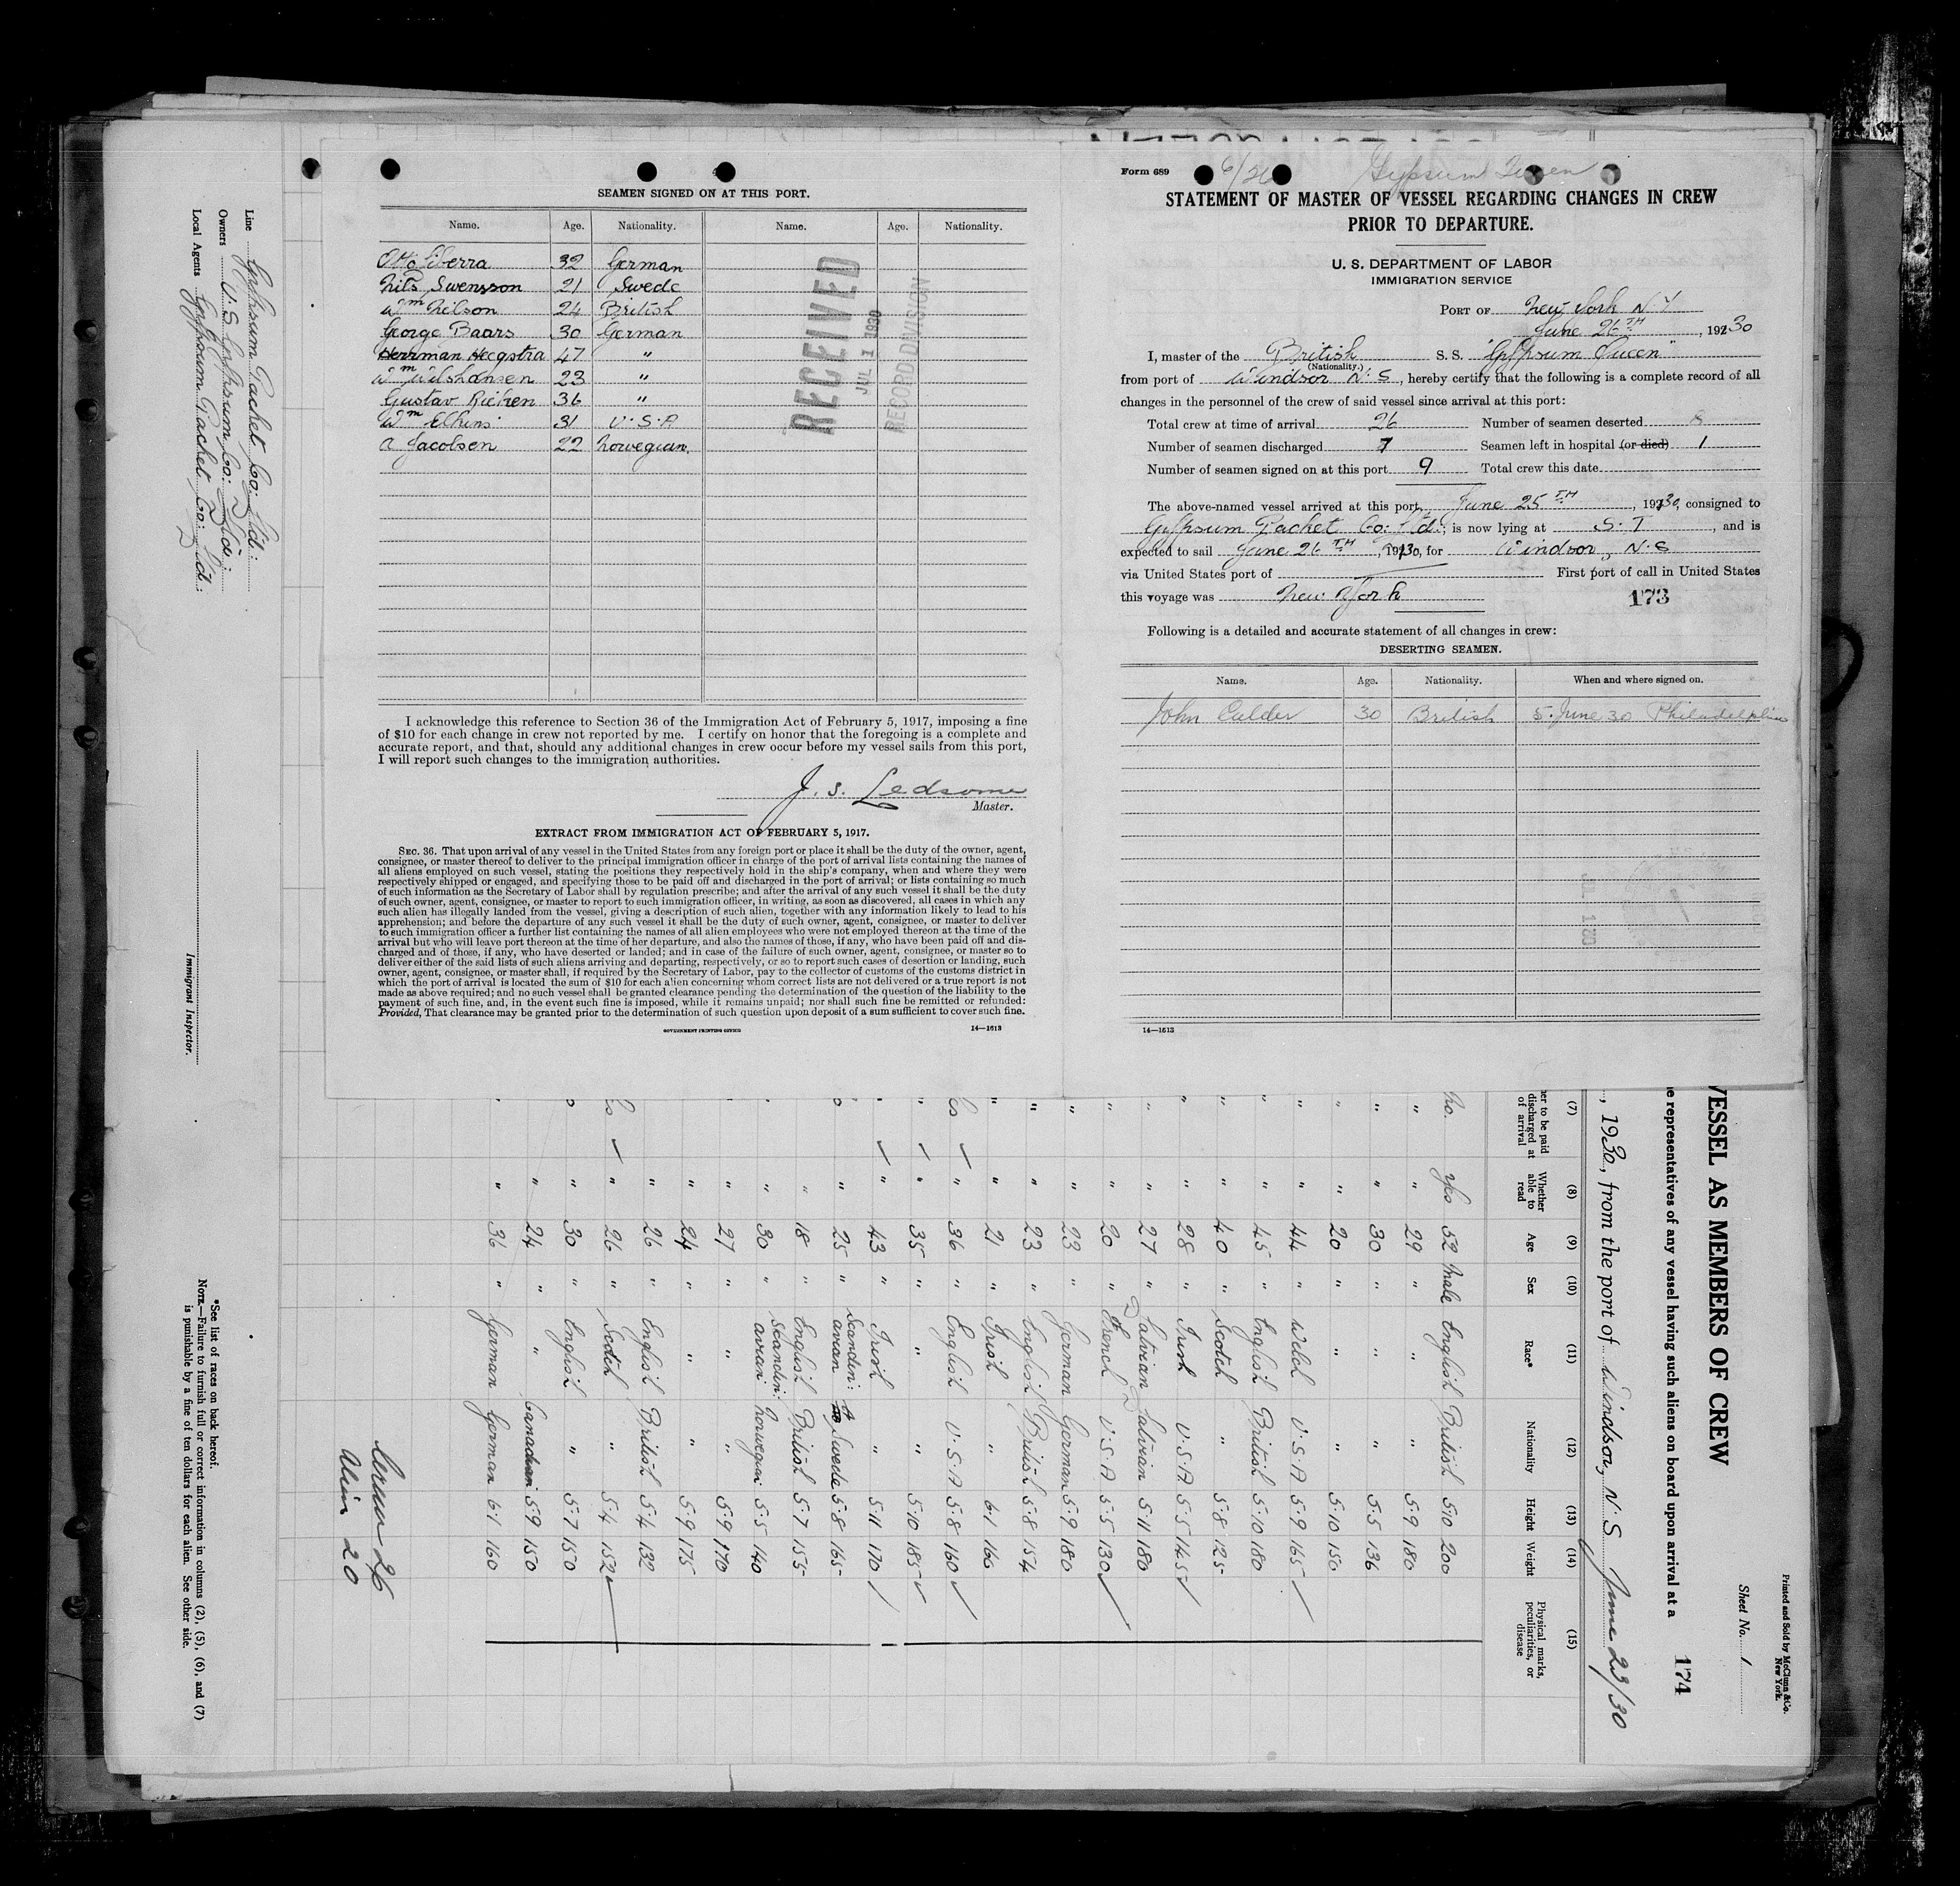 SEAMEN SIGNED ON AT THIS PORT.
Name. Age. Nationality. Name. Age. Nationality.
32 German
Nils Swensson 21 Swede
Wm Nilson 24 British
George Baars 30 German
Herrman Heegstra 47 "
Wm Wilshansen 23 "
Gustav Ricken 36 "
Wm Elkins 31 U.S.A
A Jacolsen 22 Norwegian.
RECEIVED
JUL 1 1930
RECORD DIVISION
I acknowledge this reference to Section 36 of the Immigration Act of February 5, 1917, imposing a fine
of $10 for each change in crew not reported by me. I certify on honor that the foregoing is a complete and
accurate report, and that, should any additional changes in crew occur before my vessel sails from this port,
I will report such changes to the immigration authorities.
J. S. Ledsome
Master.
EXTRACT FROM IMMIGRATION ACT OF FEBRUARY 5, 1917.
SEC. 36. That upon arrival of any vessel in the United States from any foreign port or place it shall be the duty of the owner, agent,
consignee, or master thereof to deliver to the principal immigration officer in charge of the port of arrival lists containing the names of
all aliens employed on such vessel, stating the positions they respectively hold in the ship's company, when and where they were
respectively shipped or engaged, and specifying those to be paid off and discharged in the port of arrival; or lists containing so much
of such information as the Secretary of Labor shall by regulation prescribe; and after the arrival of any such vessel it shall be the duty
of such owner, agent, consignee, or master to report to such immigration officer, in writing, as soon as discovered, all cases in which any
such alien has illegally landed from the vessel, giving a description of such alien, together with any information likely to lead to his
apprehension; and before the departure of any such vessel it shall be the duty of such owner, agent, consignee, or master to deliver
to such immigration officer a further list containing the names of all alien employees who were not employed thereon at the time of the
arrival but who will leave port thereon at the time of her departure, and also the names of those, if any, who have been paid off and dis-
charged and of those, if any, who have deserted or landed; and in case of the failure of such owner, agent, consignee, or master so to
deliver either of the said lists of such aliens arriving and departing, respectively, or so to report such cases of desertion or landing, such
owner, agent, consignee, or master shall, if required by the Secretary of Labor, pay to the collector of customs of the customs district in
which the port of arrival is located the sum of $10 for each alien concerning whom correct lists are not delivered or a true report is not
made as above required; and no such vessel shall be granted clearance pending the determination of the question of the liability to the
payment of such fine, and, in the event such fine is imposed, while it remains unpaid; nor shall such fine be remitted or refunded:
Provided, That clearance may be granted prior to the determination of such question upon deposit of a sum sufficient to cover such fine.
GOVERNMENT PRINTING OFFICE 14—1613
Form 689 Gypsum Queen
STATEMENT OF MASTER OF VESSEL REGARDING CHANGES IN CREW
PRIOR TO DEPARTURE.
U. S. DEPARTMENT OF LABOR
IMMIGRATION SERVICE
PORT OF New York N Y
June 26TH, 1930
I, master of the British S. S. "Gypsum Queen"
(Nationality.)
from port of Windsor N.S, hereby certify that the following is a complete record of all
changes in the personnel of the crew of said vessel since arrival at this port:
Total crew at time of arrival 26 Number of seamen deserted
Number of seamen discharged 7 Seamen left in hospital (or died) 1
Number of seamen signed on at this port 9 Total crew this date
The above-named vessel arrived at this port June 25TH, 1930, consigned to
Gypsum Packet Co: Ltd:; is now lying at S. I, and is
expected to sail June 26TH, 1930, for Windsor, N.S
via United States port of First port of call in United States
this voyage was New York 173
Following is a detailed and accurate statement of all changes in crew:
DESERTING SEAMEN.
Name. Age. Nationality. When and where signed on.
John Calder 30 British 5. June 30 Philadelphia
14—1613
Line Gypsum Packet Co: Ltd:
Owners U.S. Gypsum Co: Ltd:
Local Agents Gypsum Packet Co: Ltd:
Immigrant Inspector.
Printed and Sold by McClunn & Co.
New York.
Sheet No. 1
VESSEL AS MEMBERS OF CREW
representatives of any vessel having such aliens on board upon arrival at a
174
, 1930, from the port of Windsor, N.S June 23/30
(7) (8) (9) (10) (11) (12) (13) (14) (15)
to be paid discharged at of arrival Whether able to read Age Sex Race* Nationality Height Weight Physical marks, peculiarities, or disease
No. Yes 52 Male English British 5.10 200
" " 29 " " " 5.9 180
" " 30 " " " 5.5 136
" " 20 " " " 5.10 150
" " 44 " Welch U.S.A 5.9 165
" " 45 " English British 5.10 180
" " 40 " Scotch " 5.8 125
" " 28 " Irish U.S.A 5.5 145
" " 27 " Latvian Latvian 5.11 180
" " 20 " French U.S.A 5.5 130
" " 23 " German German 5.9 180
" " 23 " English British 5.8 154
" " 21 " Irish " 6.1 160
" 36 " English U.S.A 5.8 160
" " 35 " " " 5.10 185
" " 43 " Irish " 5.11 170
" 25 " Scandin: avian Swede 5.8 165
" 18 " English British 5.7 155
" " 30 " Scandin: avian Norwegian 5.5 140
" " 27 " " " 5.9 170
" " 24 " " " 5.9 175
" " 26 " English British 5.4 132
" 26 " Scotch " 5.4 152
" 30 " English " 5.7 150
" 24 " " Canadian 5.9 150
" " 36 " German German 6.1 160
Crew 26
Alien 20
*See list of races on back hereof.
NOTE.—Failure to furnish full or correct information in columns (2), (5), (6), and (7)
is punishable by a fine of ten dollars for each alien. See other side.